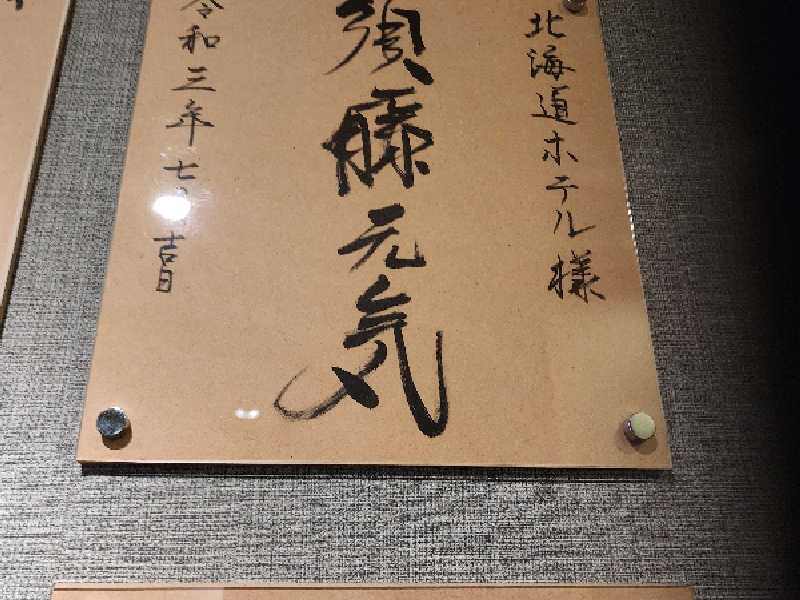 北海道ホテル様
須藤元気
令和三年七月吉日